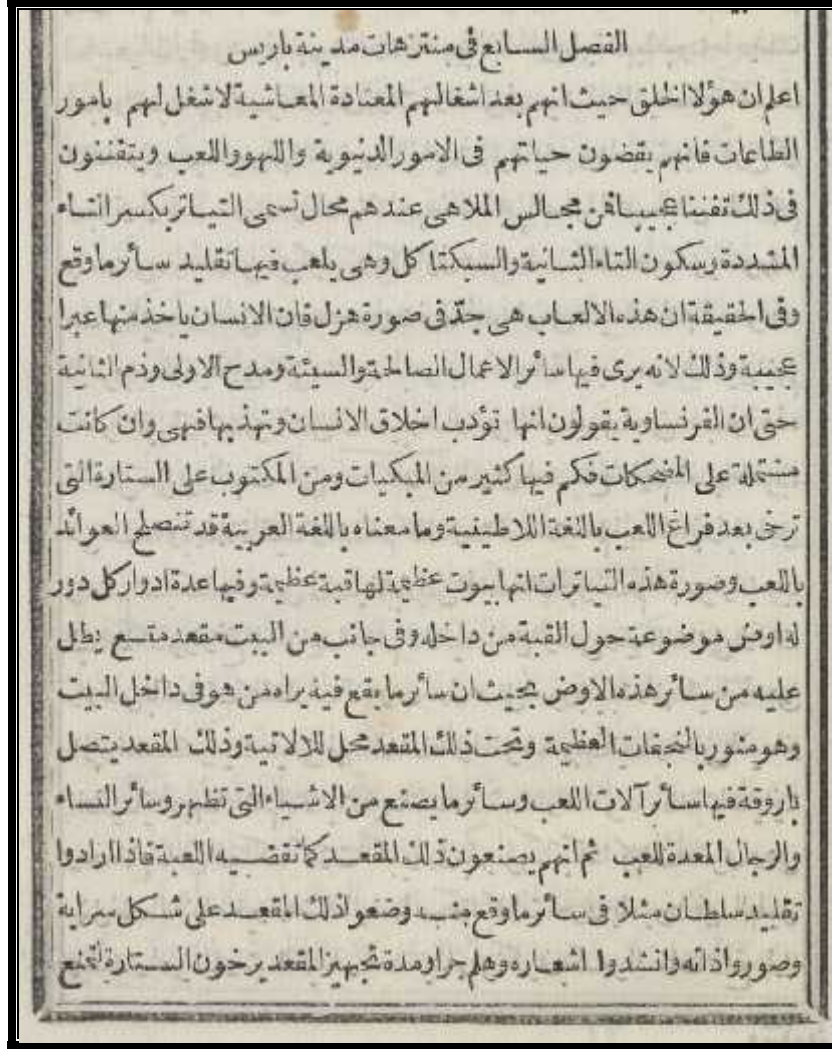 الفصل السابع فى منتزهات مدينة باريس
اعلم ان هؤلا الخلق حيث انهم بعد اشغالهم المعتادة المعاشية لا شغل لهم بامور
الطاعات فانهم يقضون حياتهم فى الامور الدنيوية واللهو واللعب ويتفننون
فى ذلك تفننا عجيبا فن مجالس الملاهى عندهم محال تسمى التياتر بكسر التاء
المشددة وسكون التاء الثانية والسبكتاكل وهى يلعب فيها تقليد سائر ما وقع
وفى الحقيقة ان هذه الالعاب هى جدّ فى صورة هزل فان الانسان ياخذ منها عبرا
عجيبة وذلك لانه يرى فيها سائر الاعمال الصالحة والسيئة ومدح الاولى وذم الثانية
حتى ان الفرنساوية يقولون انها تؤدب اخلاق الانسان وتهذبها فهى وان كانت
مشتملة على المضحكات فكم فيها كثير من المبكيات ومن المكتوب على الستارة التى
ترخى بعد فراغ اللعب باللغة اللاطينية وما معناه باللغة العربية قد تنصلح العوائد
باللعب وصورة هذه التياترات انها بيوت عظيمة لها قبة عظيمة وفيها عدة ادوار كل دور
له اوض موضوعة حول القبة من داخله وفى جانب من البيت مقعد متسع يطل
عليه من سائر هذه الاوض بحيث ان سائر ما يقع فيه يراه من هو فى داخل البيت
وهو منور بالنجفات العظيمة وتحت ذلك المقعد محل للآلاتية وذلك المقعد يتصل
باروقة فيها سائر آلات اللعب وسائر ما يصنع من الاشياء التى تظهر وسائر النساء
والرجال المعدة للعب ثم انهم يصنعون ذلك المقعد كما تقتضيه اللعبة فاذا ارادوا
تقليد سلطان مثلا فى سائر ما وقع منه وضعوا ذلك المقعد على شكل سراية
وصوروا ذاته وانشدوا اشعاره وهلم جرا ومدة تجهيز المقعد يرخون الستارة لتمنع